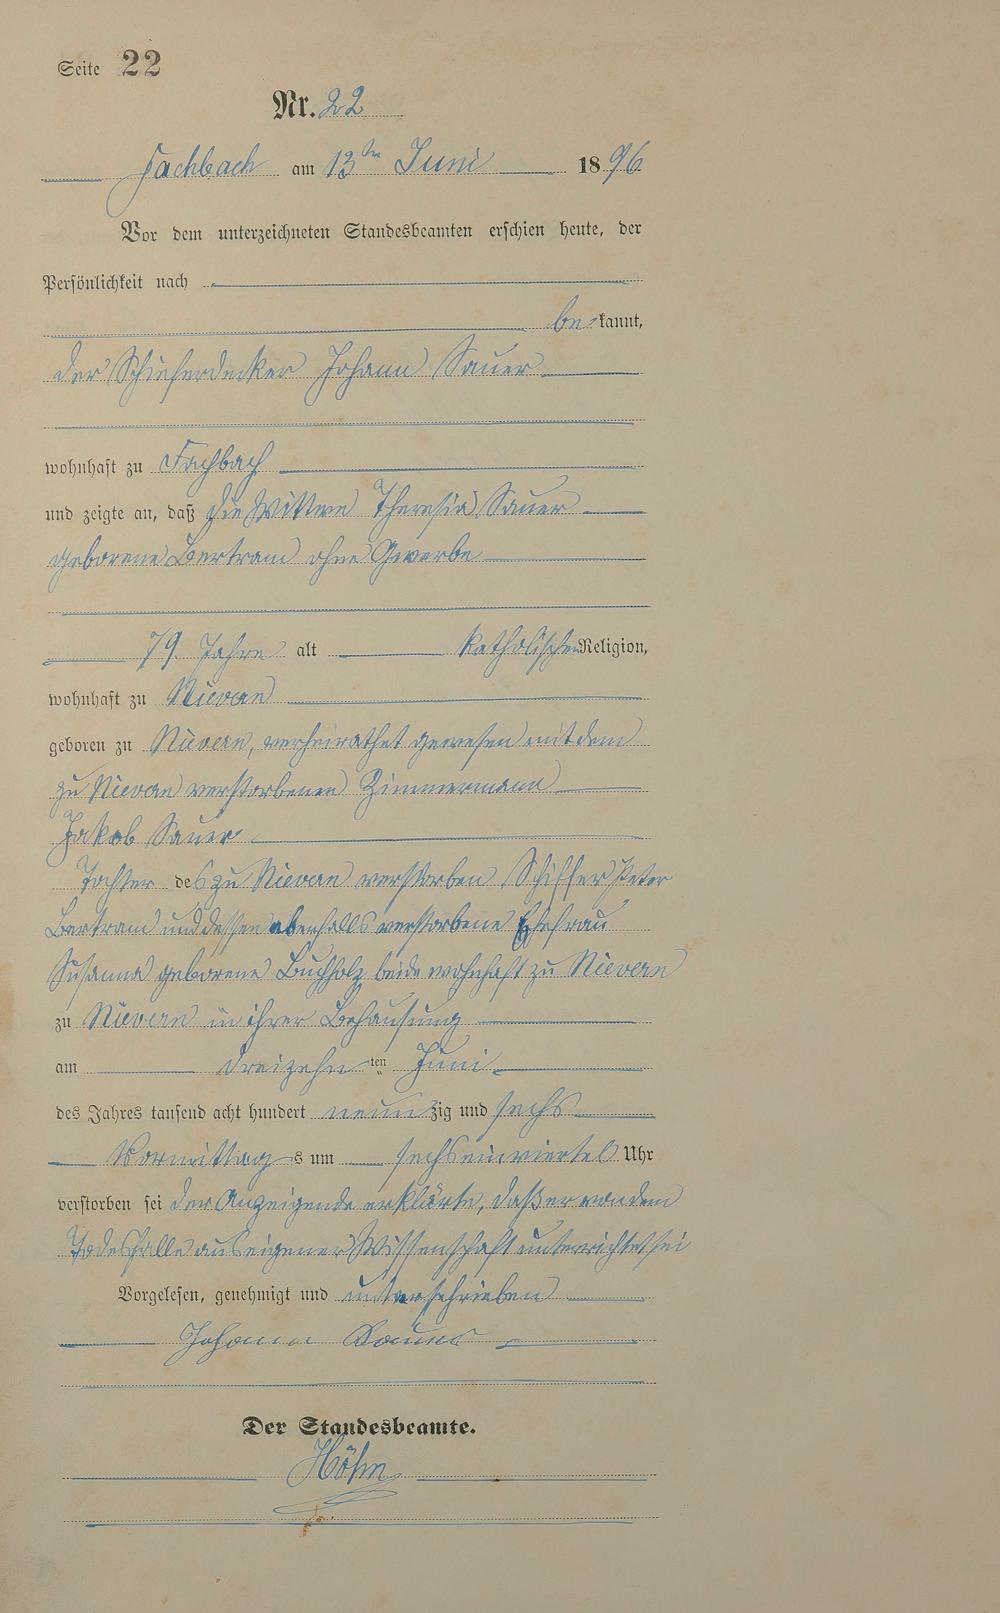 Seite 22
Nr. 22
Fachbach am 13ten Juni 1896
Vor dem unterzeichneten Standesbeamten erschien heute, der
Persönlichkeit nach
bekannt,
der Schieferdecker Johann Sauer
wohnhaft zu Fachbach
und zeigte an, daß die Wittwe Theresia Sauer
geborene Bertram ohne Gewerbe
79 Jahre alt katholischer Religion,
wohnhaft zu Nievern
geboren zu Nievern, verheirathet gewesen mit dem
zu Nievern verstorbenen Zimmermann
Jakob Sauer
Tochter des zu Nievern verstorben Schiffer Peter
Bertram und dessen ebenfalls verstorbene Ehefrau
Susanna geborene Buchholz beide wohnhaft zu Nievern
zu Nievern in ihrer Behausung
am dreizehnten Juni
des Jahres tausend acht hundert neunzig und sechs
Vormittags um sechseinviertel Uhr
verstorben sei der Anzeigende erklärte, daß er von dem
Todesfalle aus eigener Wissenschaft unterrichtet sei
Vorgelesen, genehmigt und unterschrieben
Johann Sauer
Der Standesbeamte.
Höhn